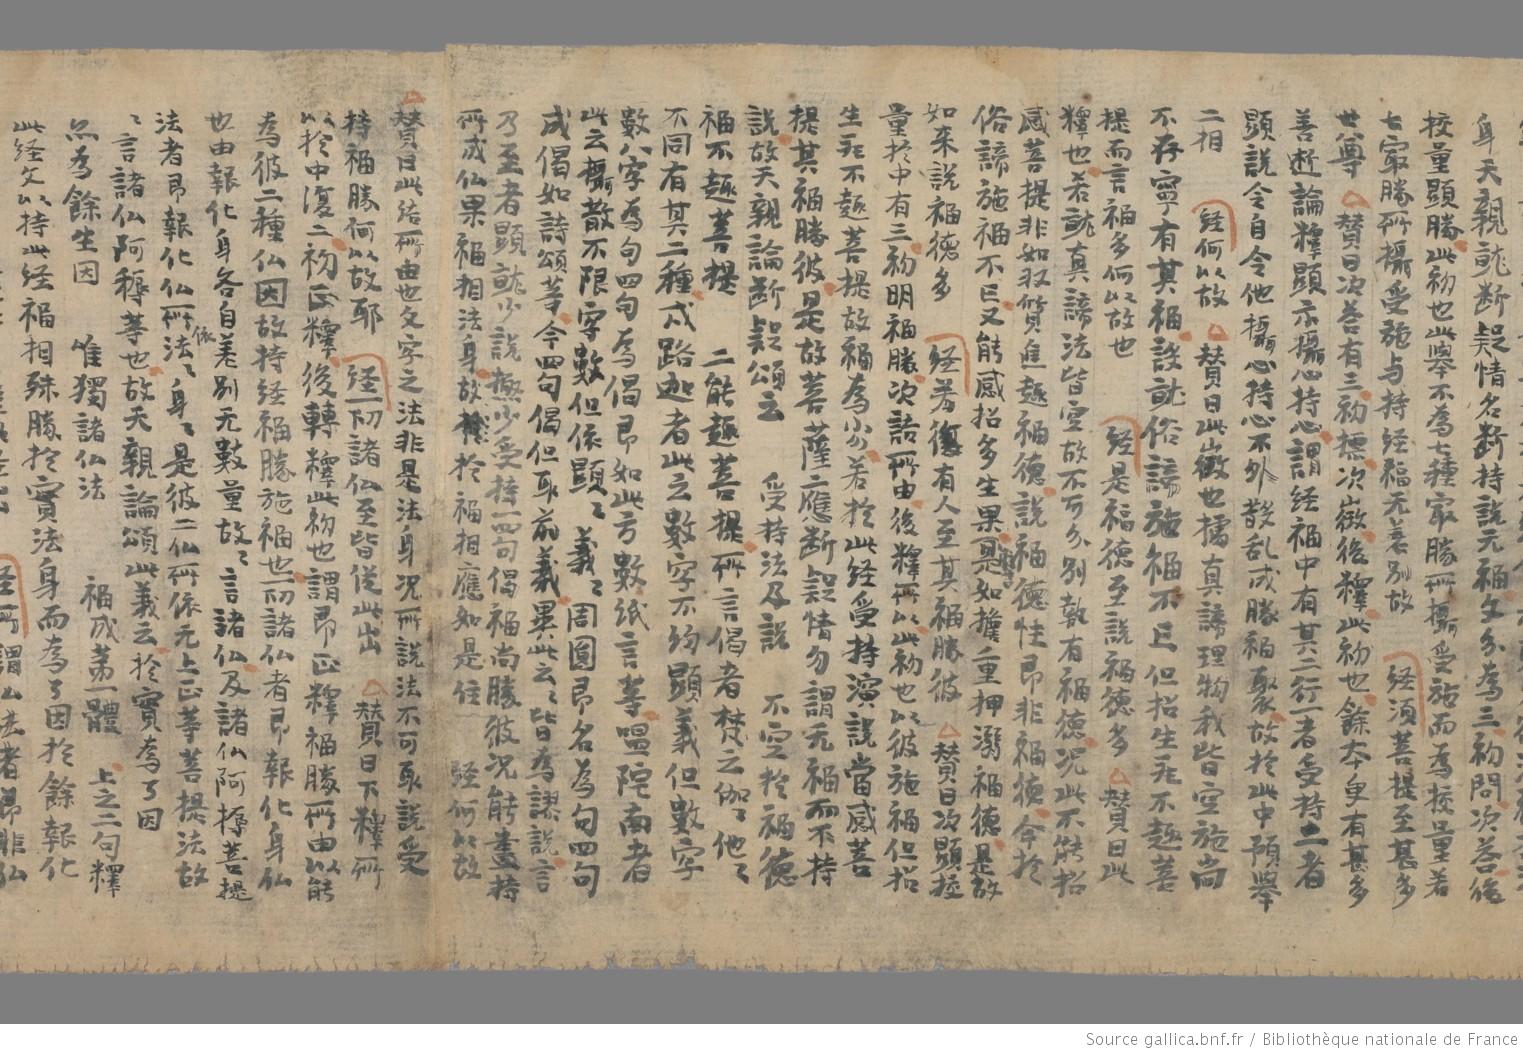 身天親就斷疑情名斷持說无福文分為三初問次荅後
校量顯勝此初也此舉不為七種寂勝所攝受施而為挍量若
七寂勝所攝受施与持経福无差別故 経須菩提至甚多
世尊 賛曰次荅有三初摽次徵後釋此初也餘本更有甚多
善逝論釋顯示攝心持心謂経福中有其二行一者受持二者
顯說令自令他攝心持心不外散乱成勝福聚故於此中預舉
二相 経何以故 賛曰此徵也據真諦理物我皆空施尚
不存寧有其福設就俗諦施福不已但招生死不趣菩
提而言福多何以故也 経是福德至說福德多 賛曰此
釋也若就真諦法皆空故不可分別敎有福德况此不能招
感菩提非如双質焦趣福德說福德性即非福德今於
俗諦施福不已又能感招多生果異如擔重押溺福德是故
如来說福德多 経若復有人至其福勝彼 賛曰次顯挍
量於中有三初明福勝次語所由後釋所以此初也以彼施福但招
生死不趣菩提故福為少分若於此経受持演說當感菩
提其福勝彼是故菩薩應斷誤情勿謂无福而不持
說故天親論斷疑頌云 受持法及說 不空於福德
福不趣菩提 二能趣菩提所言偈者梵之伽ミ他ミ
不同有其二種一式路迦者此云數字不約顯義但數字
數八字為句四句為偈即如此方數紙言等嗢陁南者
此云攝散不限字數但依顯ミ義ミ周圓即名為句四句
成偈如詩頌等今四句偈但取前義異此云ミ皆為謬說言
乃至者顯就少說極少受持一四句偈福尚勝彼况能盡持
所成仏果福相法身故於福相應如是住 経何以故
賛曰此結所由也文字之法非是法身况所說法不可取說受
持福勝何以故耶 経一切諸仏至皆從此出 賛曰下釋所
以於中復二初正釋後轉釋此初也謂即正釋福勝所由以能
為彼二種仏因故持経福勝施福也一切諸仏者即報化身仏
也由報化身各自差別无數量故ミ言諸仏及諸仏阿耨菩提
法者即報化仏所依法ミ身ミ是彼二仏所依无上正等菩提法故
ミ言諸仏阿耨等也故天親論頌此義云於實為了因
忽為餘生因 唯獨諸仏法 福成第一體 上之二句釋
此経文以持此経福相殊勝於實法身而為了因於餘報化